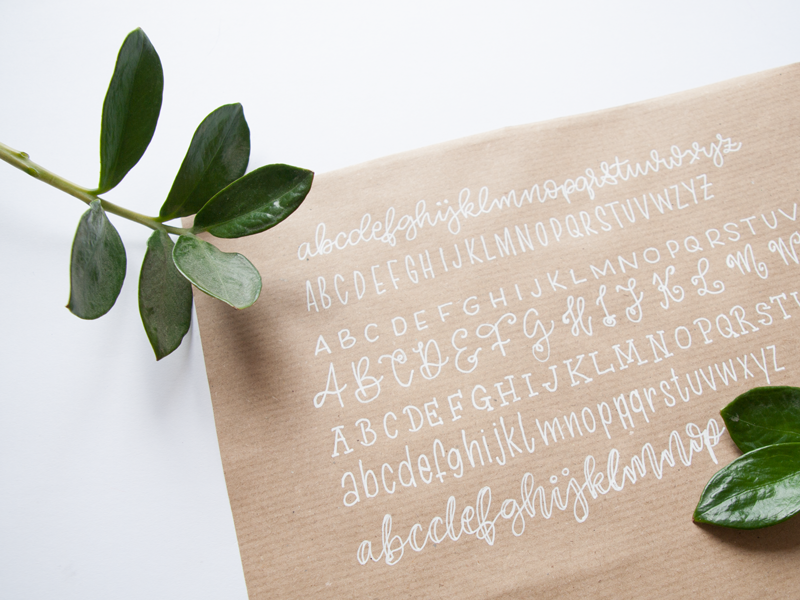 abcdefghijklmnopqrstuvwxyz
ABCDEFGHIJKLMNOPQRSTUVWZYZ
ABCDEFGHIJKLMNOPQRSTUV
ABCDEFGHIJKLMN
ABCDEFGHIJKLMNOPQRSTU
abcdefghijklmnopqqrstuvwxyz
abccdefghijklmnop